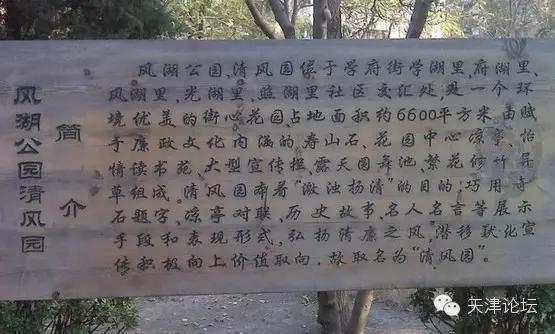 风湖公园清风园
简介
风湖公园、清风园位于学府街学湖里、府湖里、
风湖里、光湖里、蓝湖里社区交汇处,是一个环
境优美的街心花园,占地面积约6600平方米,由赋
予廉政文化内涵的寿山石、花园中心凉亭、怡
情读书苑、大型宣传栏、露天圆舞池、繁花修竹
草组成。清风园本着“激浊扬清”的目的,巧用奇
石题字、凉亭对联、历史故事、名人名言等展示
手段和表现形式,弘扬清廉之风,潜移默化宣
传积极向上价值取向,故取名为“清风园”。
天津论坛